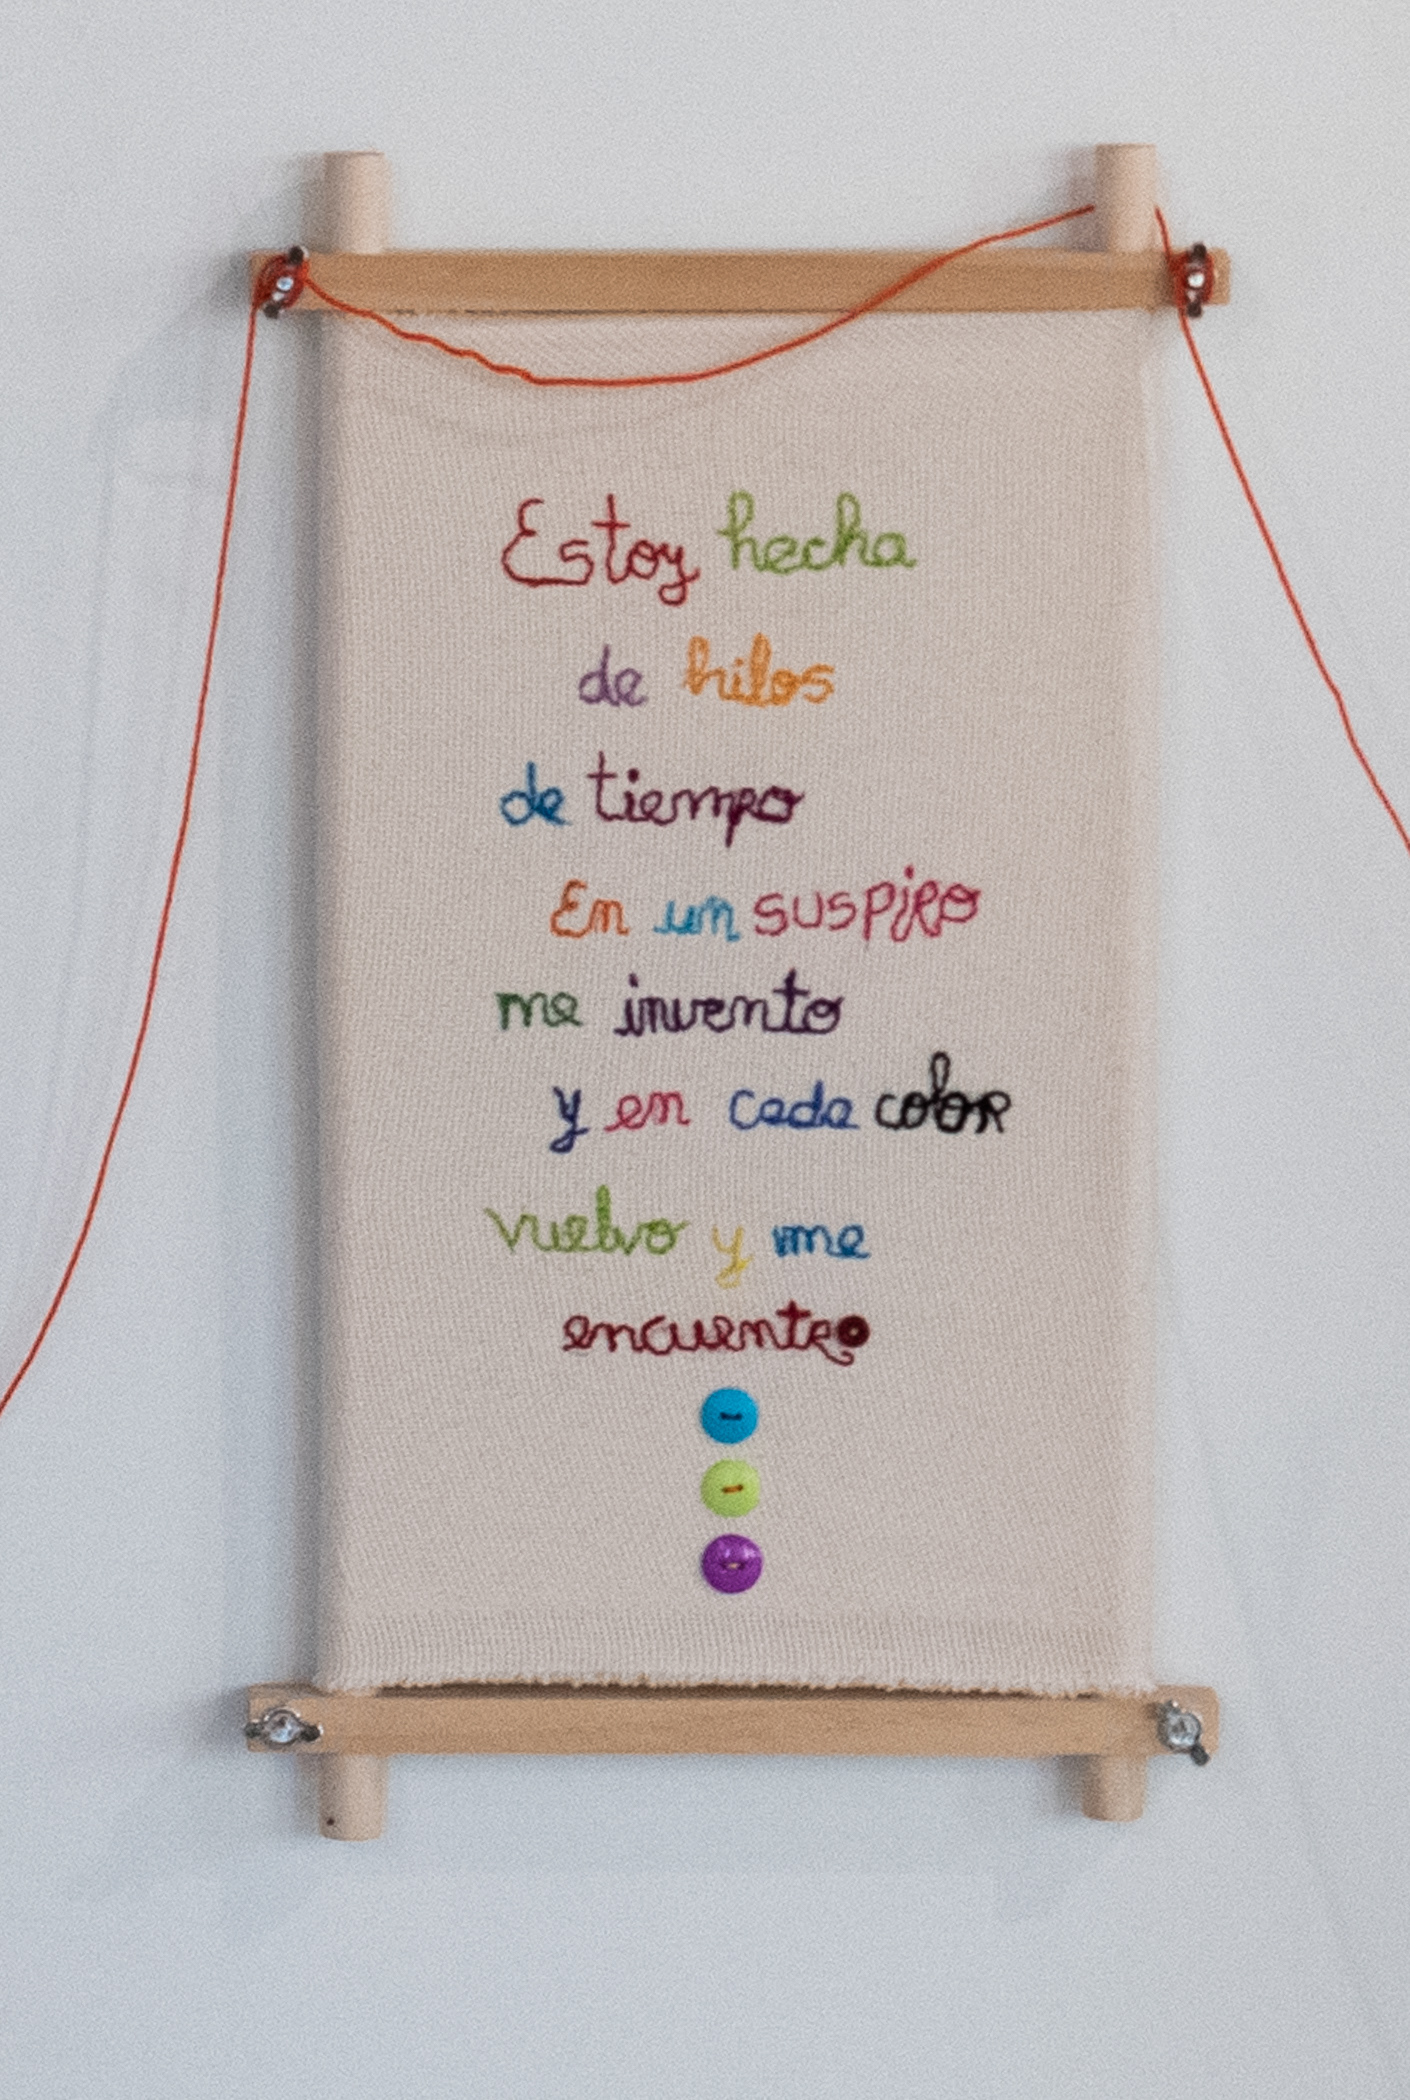 Estoy hecha
de hilos
de tiempo
En un suspiro
me invento
y en cada color
vuelvo y me
encuentro